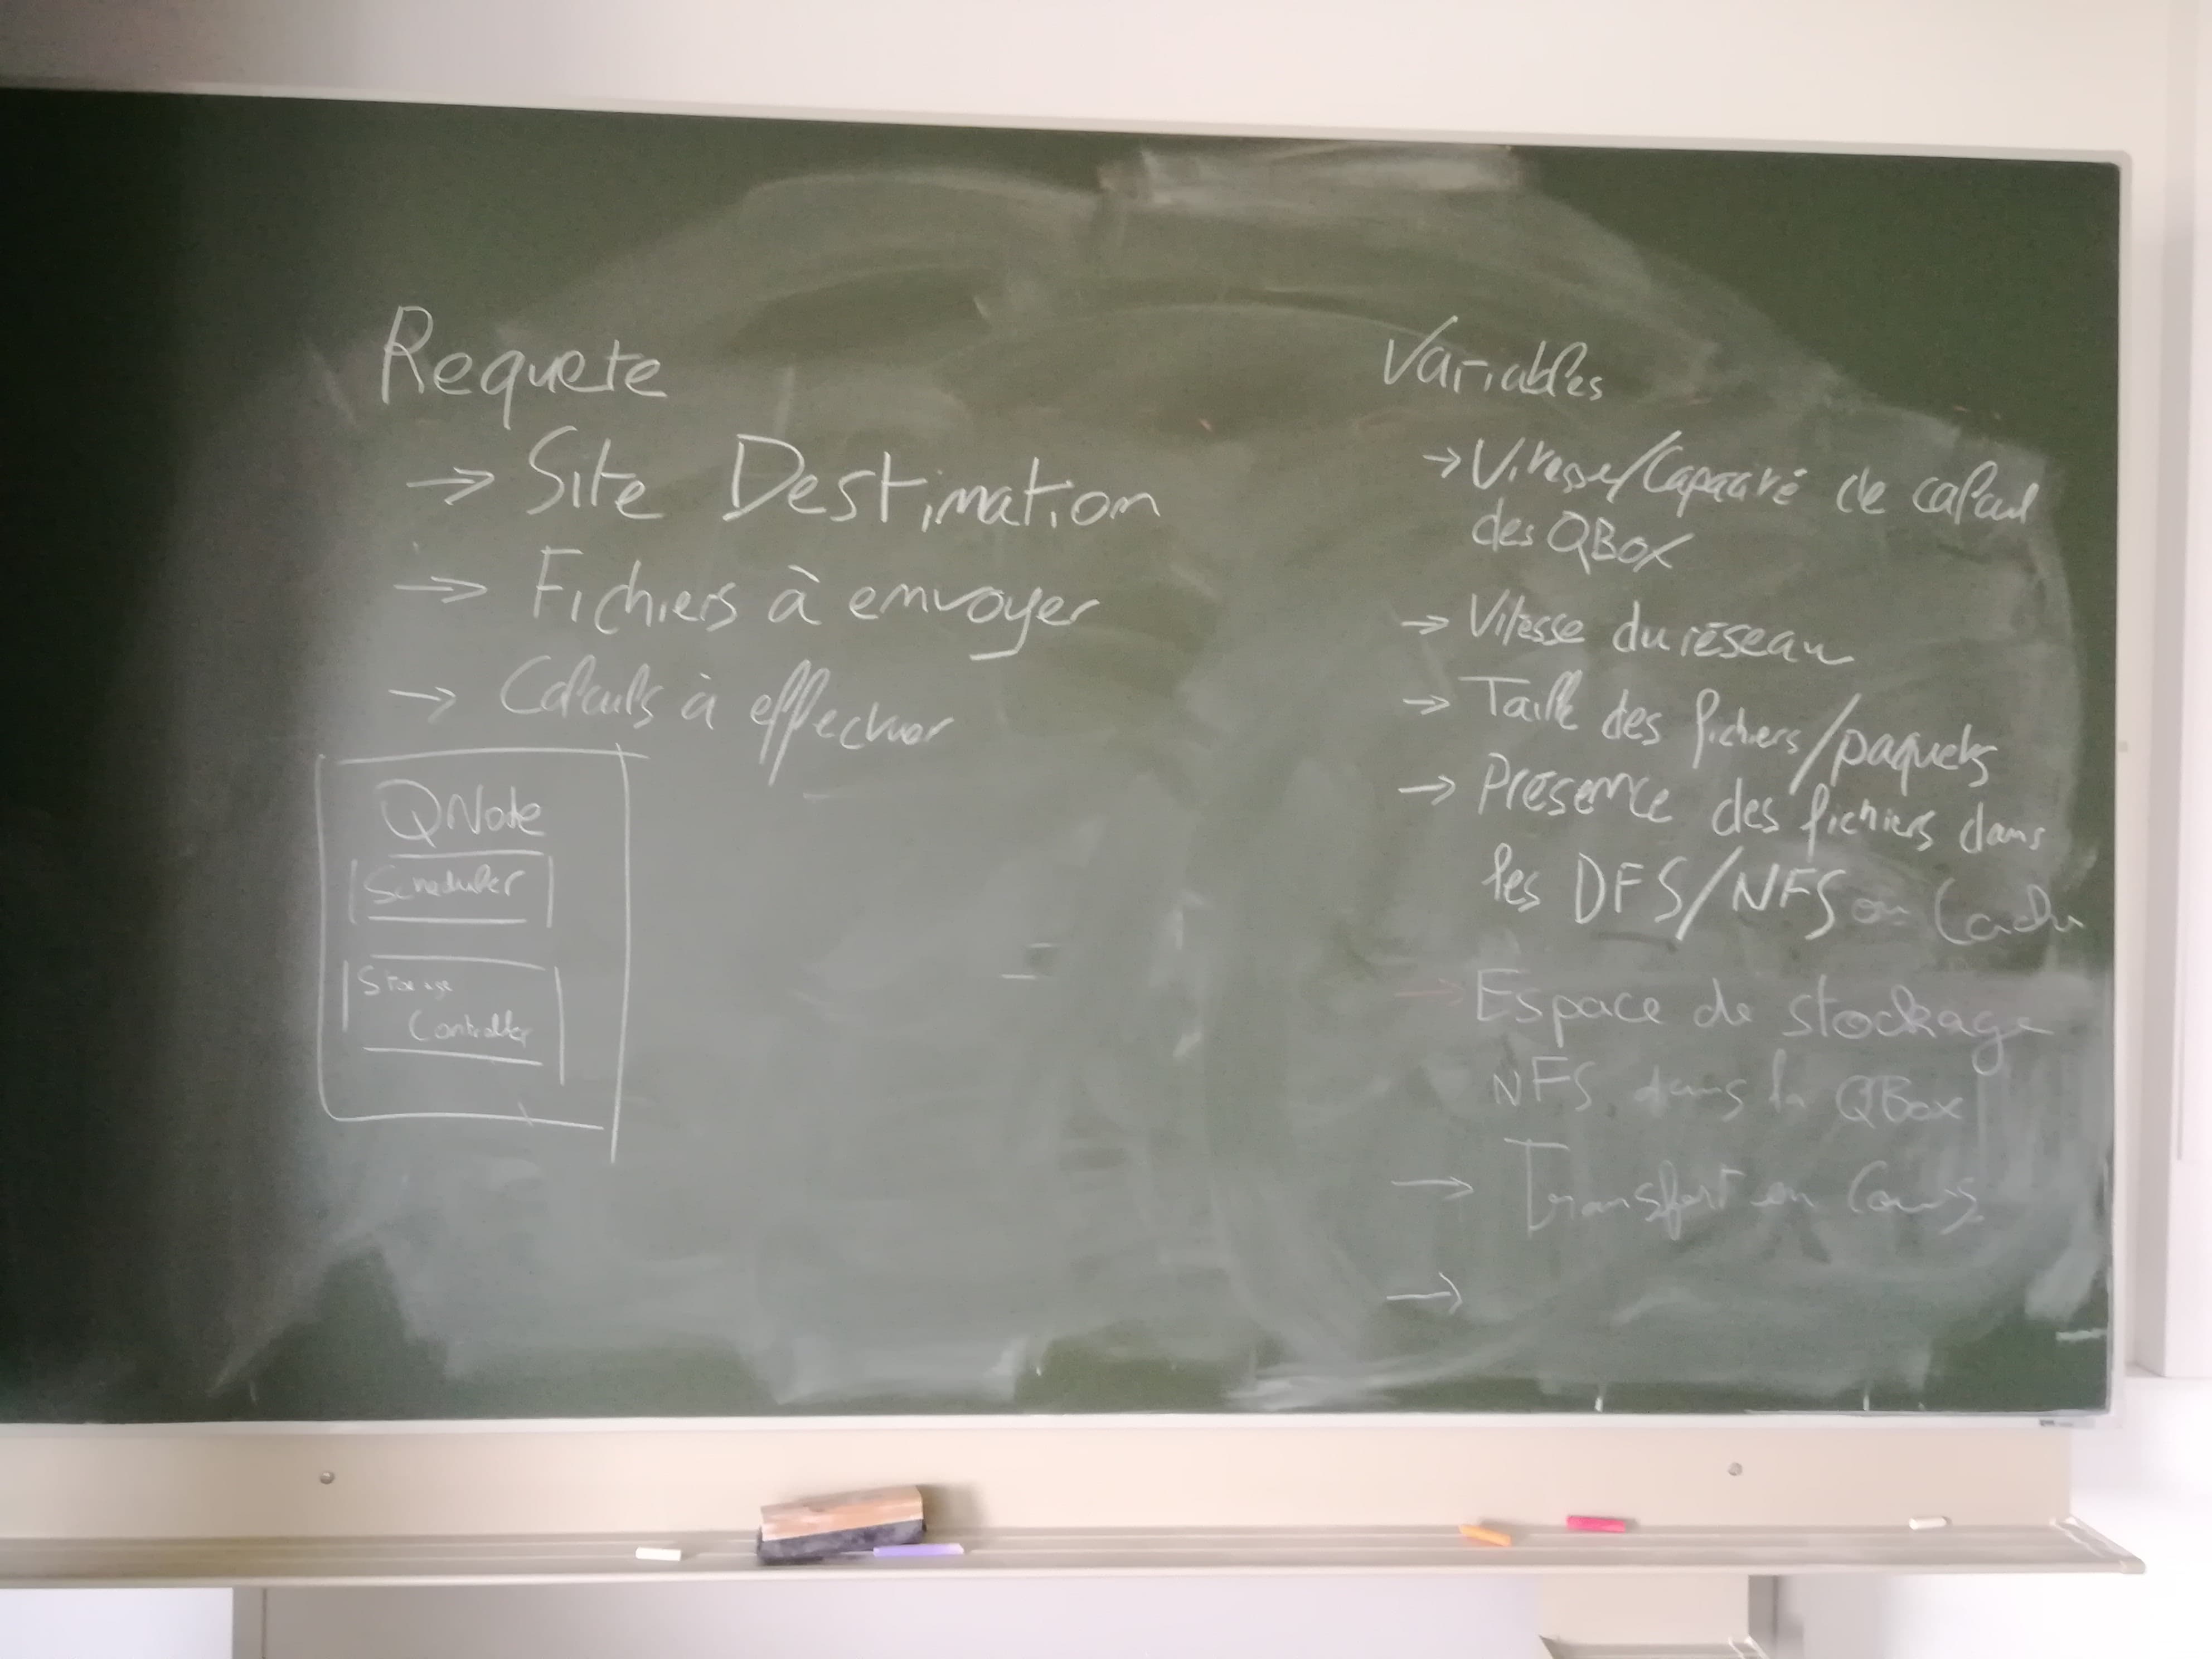 Requete
→ Site Destination
→ Fichiers à envoyer
→ Calculs à effectuer
QNode
Scheduler
Storage
Controller
Variables
→ Vitesse/Capacité de calcul
des QBox
→ Vitesse du réseau
→ Taille des fichiers/paquets
→ Présence des fichiers dans
les DFS/NFS ou Cache
→ Espace de stockage
NFS dans la QBox
→ Transfert en cours
→